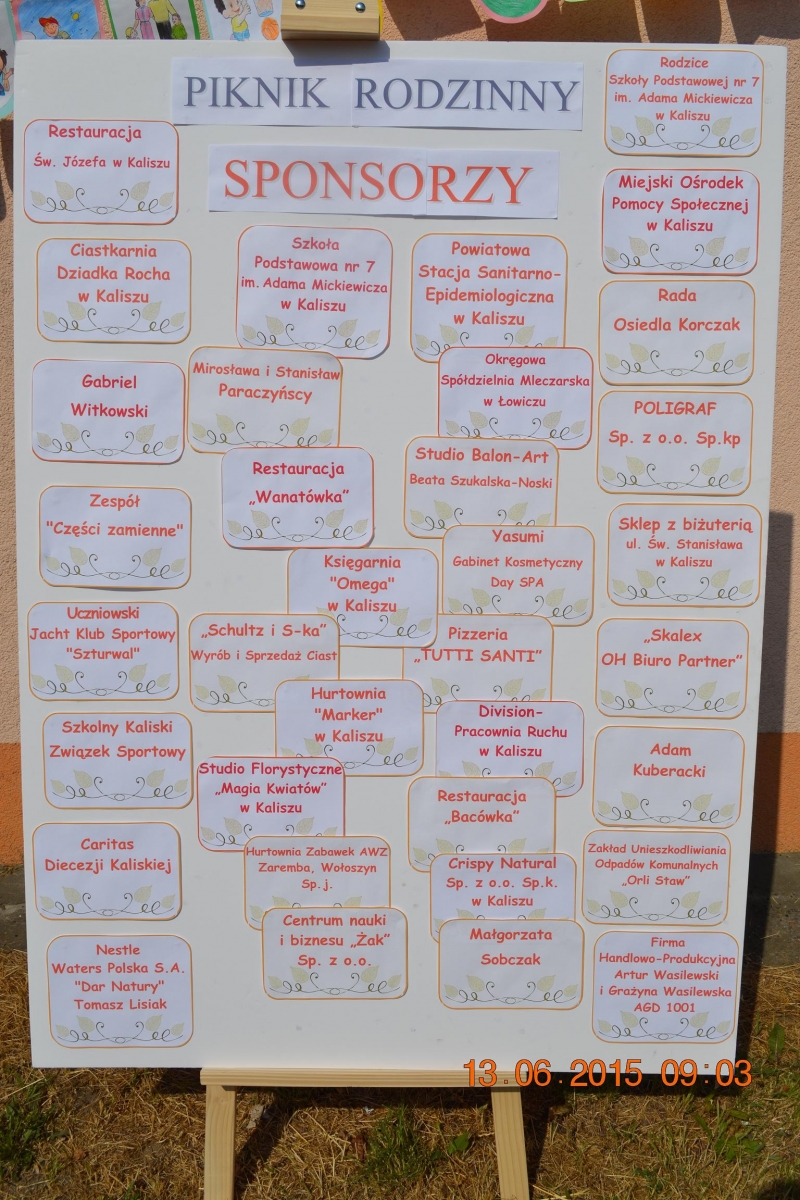 PIKNIK RODZINNY
SPONSORZY
Restauracja
Św. Józefa w Kaliszu
Ciastkarnia
Dziadka Rocha
w Kaliszu
Gabriel
Witkowski
Zespół
"Części zamienne"
Uczniowski
Jacht Klub Sportowy
"Szturwal"
Szkolny Kaliski
Związek Sportowy
Caritas
Diecezji Kaliskiej
Nestle
Waters Polska S.A.
"Dar Natury"
Tomasz Lisiak
Szkoła
Podstawowa nr 7
im. Adama Mickiewicza
w Kaliszu
Mirosława i Stanisław
Paraczyńscy
Restauracja
„Wanatówka”
Księgarnia
"Omega"
w Kaliszu
„Schultz i S-ka”
Wyrób i Sprzedaż Ciast
Hurtownia
"Marker"
w Kaliszu
Studio Florystyczne
„Magia Kwiatów”
w Kaliszu
Hurtownia Zabawek AWZ
Zaremba, Wołoszyn
Sp.j.
Centrum nauki
i biznesu „Żak”
Sp. z o.o.
Powiatowa
Stacja Sanitarno-
Epidemiologiczna
w Kaliszu
Okręgowa
Spółdzielnia Mleczarska
w Łowiczu
Studio Balon-Art
Beata Szukalska-Noski
Yasumi
Gabinet Kosmetyczny
Day SPA
Pizzeria
„TUTTI SANTI”
Division-
Pracownia Ruchu
w Kaliszu
Restauracja
„Bacówka”
Crispy Natural
Sp. z o.o. Sp.k.
w Kaliszu
Małgorzata
Sobczak
Rodzice
Szkoły Podstawowej nr 7
im. Adama Mickiewicza
w Kaliszu
Miejski Ośrodek
Pomocy Społecznej
w Kaliszu
Rada
Osiedla Korczak
POLIGRAF
Sp. z o.o. Sp.kp
Sklep z biżuterią
ul. Św. Stanisława
w Kaliszu
„Skalex
OH Biuro Partner”
Adam
Kuberacki
Zakład Unieszkodliwiania
Odpadów Komunalnych
„Orli Staw”
Firma
Handlowo-Produkcyjna
Artur Wasilewski
i Grażyna Wasilewska
AGD 1001
13.06.2015 09:03